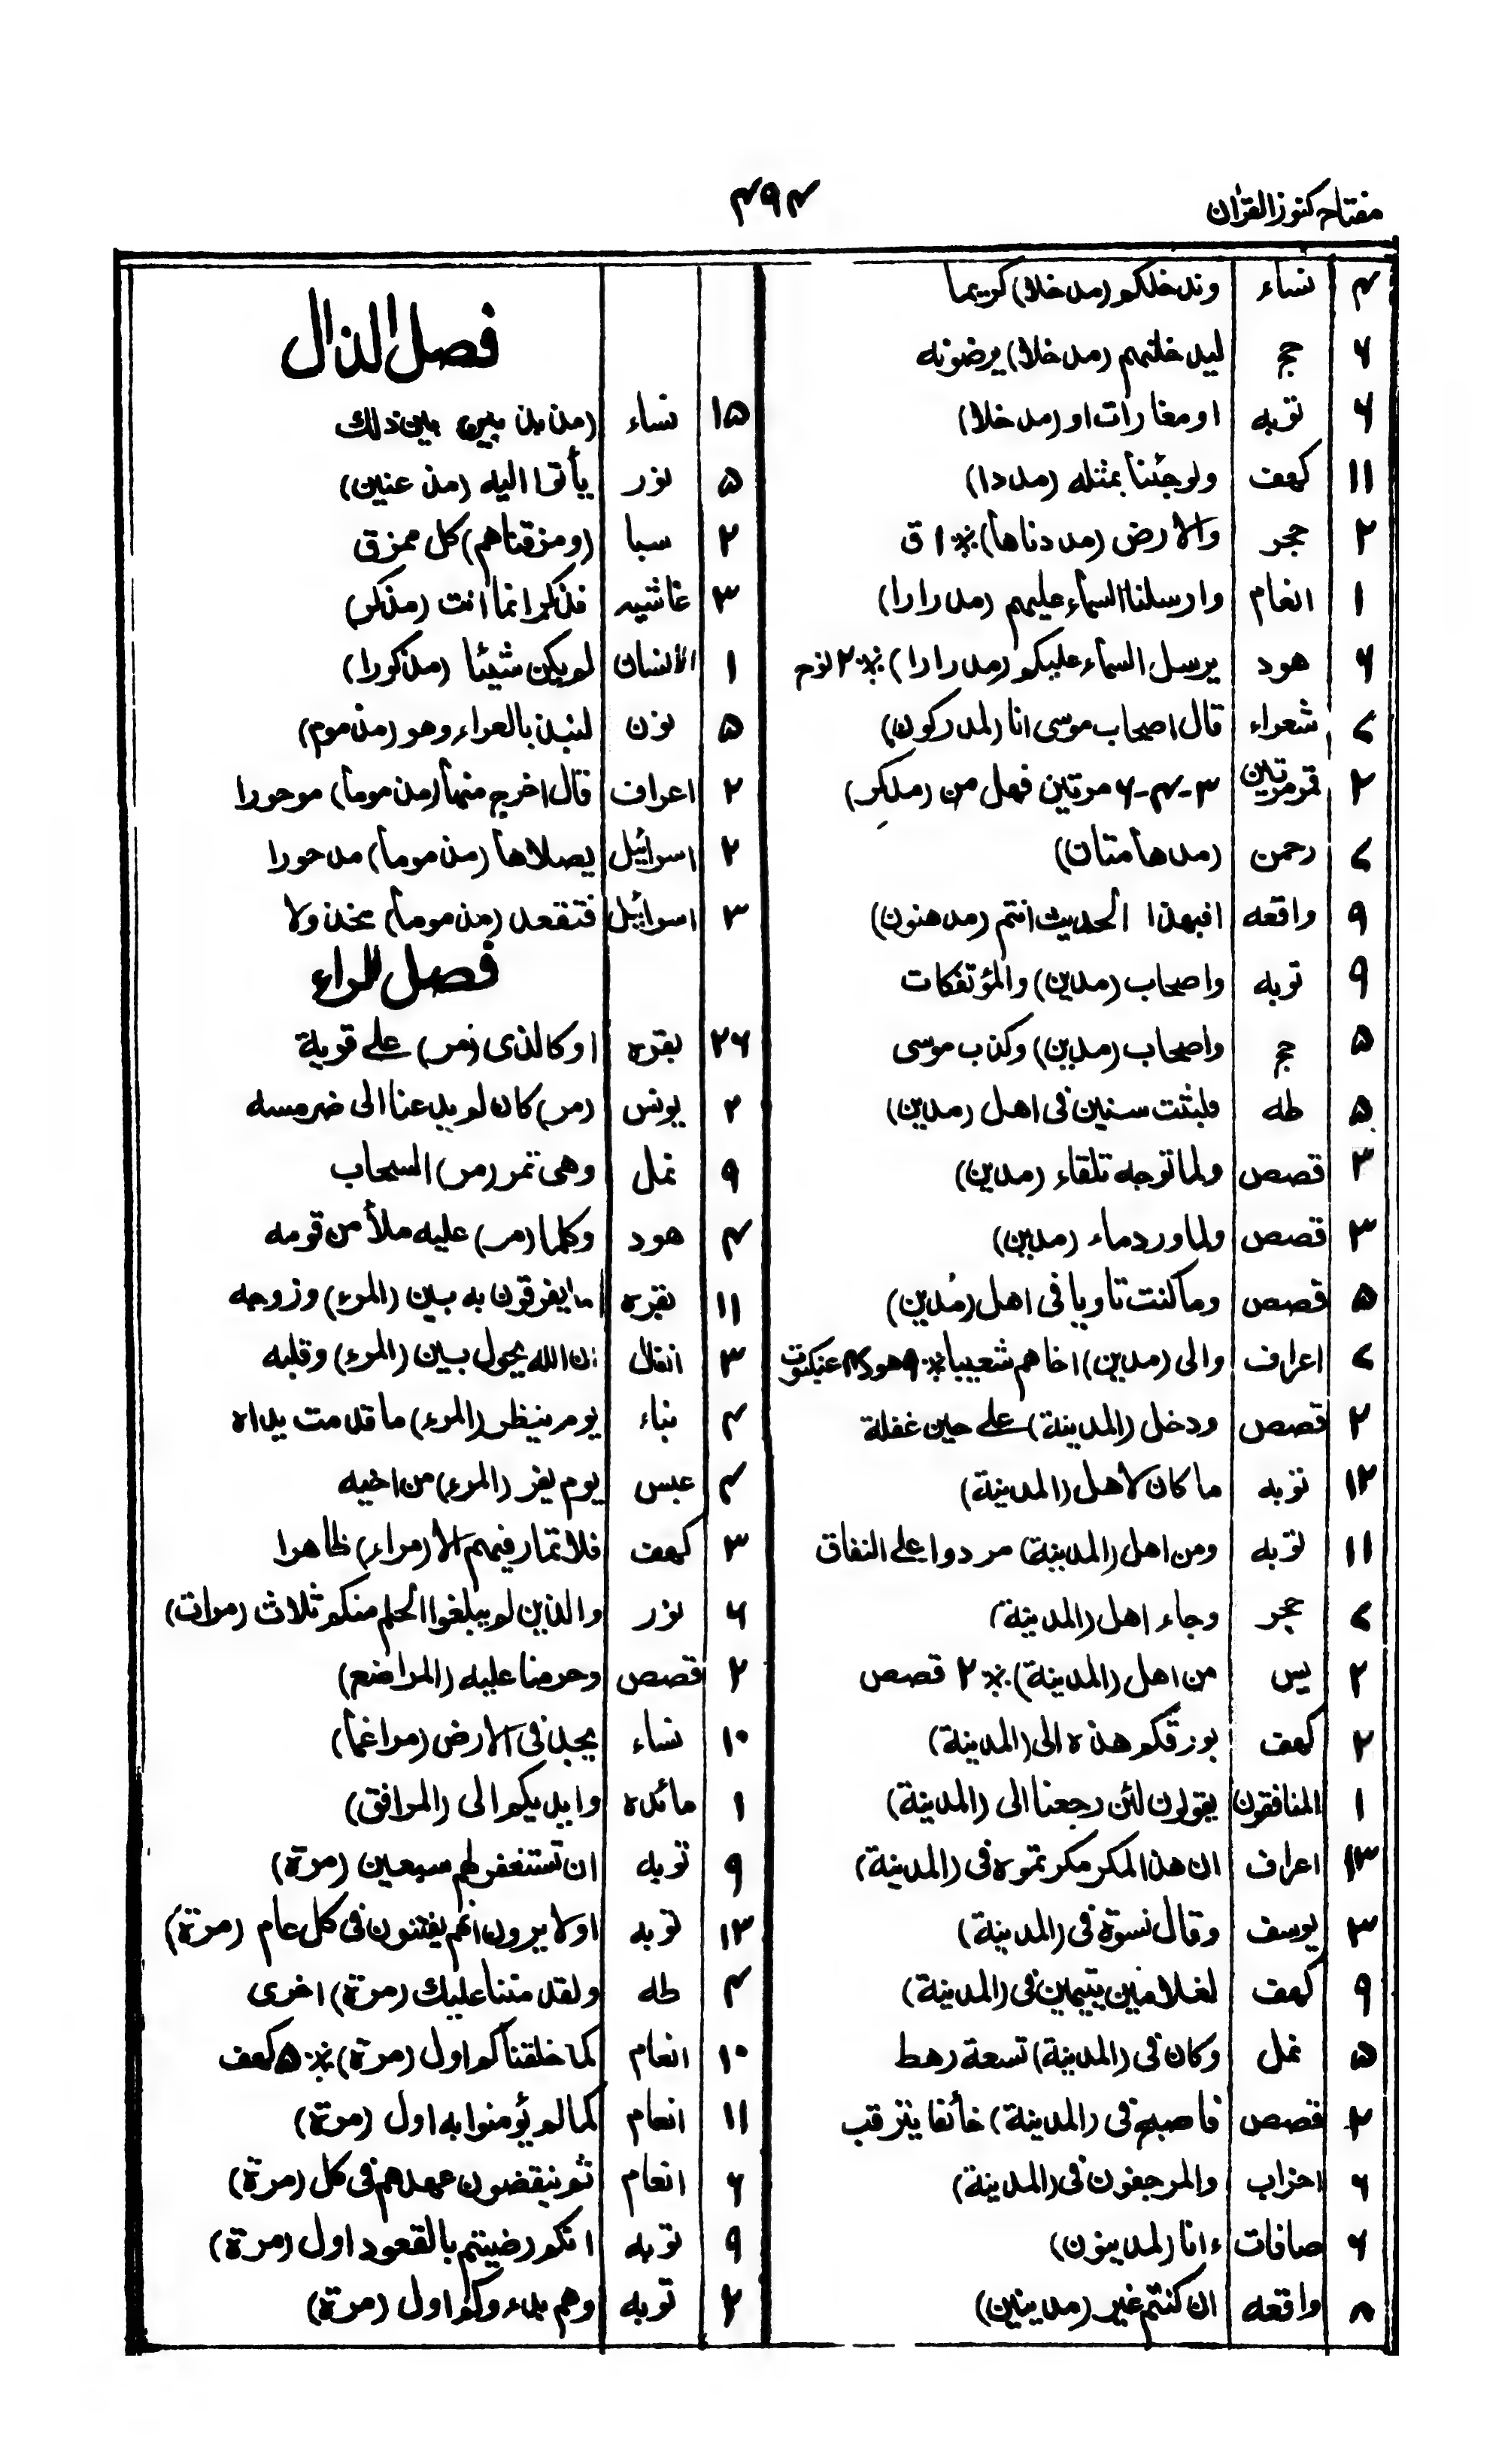 مفتاح کنوز القرٰان
۴۹۴
۴ نساء وندخلکم (مدخلا) کریما
۶ حج لیدخلنهم (مدخلا) یرضونه
۶ توبه او مغارات او (مدخلا)
۱۱ کهف ولو جئنا بمثله (مددا)
۲ حجر والارض (مددناها) ؞ ۱ ق
۱ انعام وارسلنا السماء علیهم (مدرارا)
۶ هود یرسل السماء علیکم (مدرارا) ؞ ۲ نوح
۷ شعراء قال اصحاب موسی انا (لمدرکون)
۲ قمر مرتین ۳-۴-۶ مرتین فهل من (مدکر)
۷ رحمن (مدهامتان)
۹ واقعه افبهذا الحدیث انتم (مدهنون)
۹ توبه واصحاب (مدین) والمؤتفکات
۵ حج واصحاب (مدین) وکذب موسی
۵ طه فلبثت سنین فی اهل (مدین)
۳ قصص ولما توجه تلقاء (مدین)
۳ قصص ولما ورد ماء (مدین)
۵ قصص وما کنت ثاویا فی اهل (مدین)
۷ اعراف والی (مدین) اخاهم شعیبا ؞ ۹ هود ۴ عنکبوت
۲ قصص ودخل (المدینة) علے حین غفلة
۱۲ توبه ما کان لاهل (المدینة)
۱۱ توبه ومن اهل (المدینة) مردوا علی النفاق
۷ حجر وجاء اهل (المدینة)
۲ یس من اهل (المدینة) ؞ ۲ قصص
۲ کهف بورقکم هذه الی (المدینة)
۱ المنافقون یقولون لئن رجعنا الی (المدینة)
۱۳ اعراف ان هذا المکر مکرتموه فی (المدینة)
۳ یوسف وقال نسوة فی (المدینة)
۹ کهف لغلامین یتیمین فی (المدینة)
۵ نمل وکان فی (المدینة) تسعة رهط
۲ قصص فاصبح فی (المدینة) خائفا یترقب
۶ احزاب والمرجفون فی (المدینة)
۶ صافات ءانا (لمدینون)
۸ واقعه ان کنتم غیر (مدینین)
فصل الذال
۱۵ نساء (مذبذبین) بین ذلك
۵ نور یأتوا الیه (مذعنین)
۲ سبا (ومزقناهم) کل ممزق
۳ غاشیه فذکر انما انت (مذکر)
۱ الانسان لم یکن شیئا (مذکورا)
۵ نون لنبذ بالعراء وهو (مذموم)
۲ اعراف قال اخرج منها (مذموما) موحورا
۲ اسرائیل یصلاها (مذموما) مدحورا
۳ اسرائیل فتقعد (مذموما) مخذولا
فصل الراء
۲۶ بقره او کالذی (مر) علے قریة
۲ یونس (مر) کان لم یدعنا الی ضر مسه
۹ نمل وهی تمر (مر) السحاب
۴ هود وکلما (مر) علیه ملأ من قومه
۱۱ بقره ما یفرقون به بین (المرء) وزوجه
۳ انفال ان الله یحول بین (المرء) وقلبه
۴ نباء یوم ینظر (المرء) ما قدمت یداه
۴ عبس یوم یفر (المرء) من اخیه
۳ کهف فلا تمار فیهم الا (مراء) ظاهرا
۶ نور والذین لم یبلغوا الحلم منکم ثلاث (مرات)
۲ قصص وحرمنا علیه (المراضع)
۱۰ نساء یجد فی الارض (مراغما)
۱ مائده وایدیکم الی (المرافق)
۹ توبه ان تستغفر لهم سبعین (مرة)
۱۳ توبه اولا یرون انهم یفتنون فی کل عام (مرة)
۴ طه ولقد مننا علیك (مرة) اخری
۱۰ انعام کما خلقناکم اول (مرة) ؞ ۵ کهف
۱۱ انعام کما لم یؤمنوا به اول (مرة)
۶ انعام ثم ینقضون عهدهم فی کل (مرة)
۹ توبه انکم رضیتم بالقعود اول (مرة)
۲ توبه وهم بدءوکم اول (مرة)